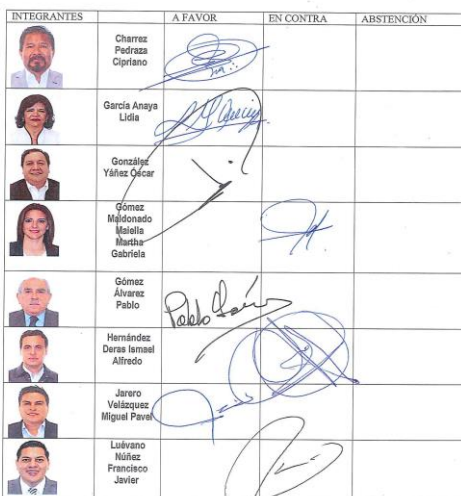 INTEGRANTES A FAVOR EN CONTRA ABSTENCIÓN
Charrez
Pedraza
Cipriano
García Anaya
Lidia
González
Yáñez Óscar
Gómez
Maldonado
Maiella
Martha
Gabriela
Gómez
Álvarez
Pablo
Hernández
Deras Ismael
Alfredo
Jarero
Velázquez
Miguel Pavel
Luévano
Núñez
Francisco
Javier